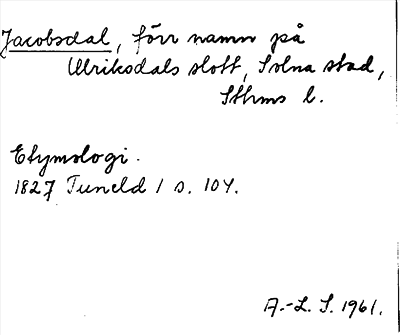 Jacobsdal, förr namn på
Ulriksdals slott, Solna stad,
Sthms l.
Etymologi.
1827 Tuneld 1 s. 104.
A.-L. S. 1961.